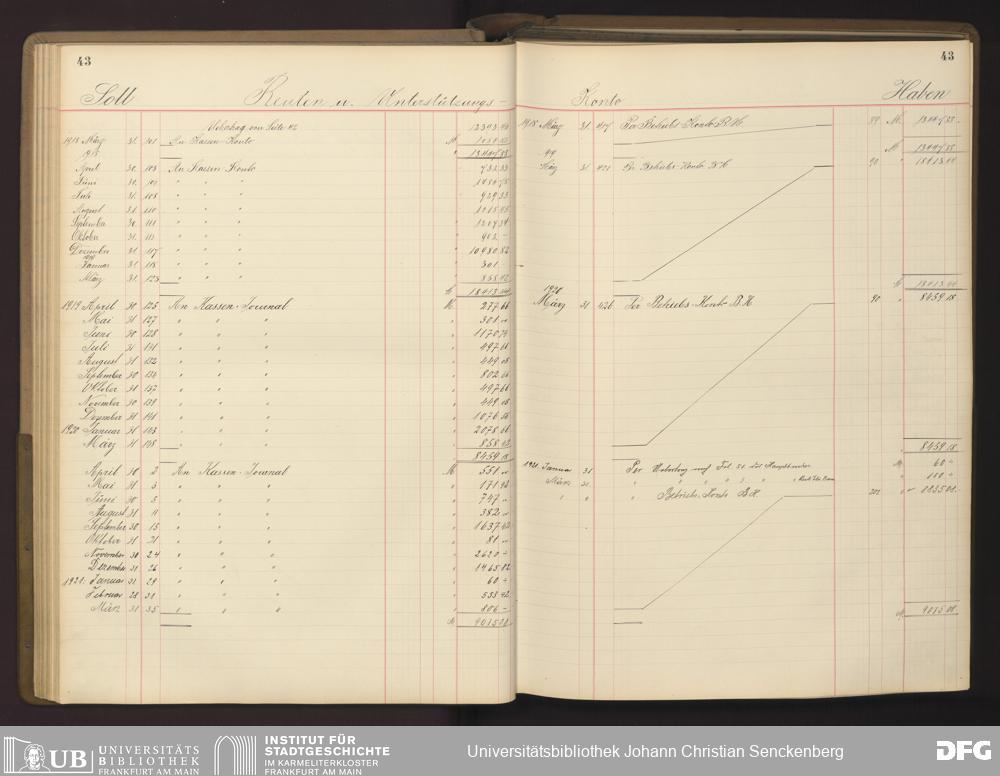 43
Soll Renten u. Unterstützungs-
Uebertrag von Seite 42
1918 März 31. 101 An Kassen-Konto M
1918
April 30. 103 An Kassen Konto
Juni 30. " " "
Juli 31. 108 " " "
August 31. 110 " " "
September 30. 111 " " "
Oktober 31. " " "
Dezember 31. 117 " " " 10480.82
1919
Januar 31. 118 " " " 301.-
März 31. 123 " " " 858.42
M 18413.44
1919 April 30 125 An Kassen-Journal M 277 66
Mai 31 127 " " " 301 "
Juni 30 128 " " "
Juli 31 131 " " " 497 66
August 31 132 " " " 449 18
September 30 134 " " " 802 66
Oktober 31 137 " " " 497 66
November 30 139 " " " 449 18
Dezember 31 141 " " " 1076 56
1920 Januar 31 143 " " " 2078 66
März 31 148 " " " 858 42
8459 18
April 30 2 An Kassen-Journal M 551 "
Mai 31 3 " " "
Juni 30 5 " " " 747 "
August 31 11 " " " 382 "
September 30 15 " " " 1637 42
Oktober 31 21 " " " 81 "
November 30 24 " " " 2620 -
Dezember 31 26 " " " 1465 02
1921. Januar 31 29 " " " 60 -
Februar 28 31 " " " 533 42
März 31 35 " " " 806 -
M 9015 01
43
Konto Haben
1918 März 31. 417 Per Betriebs-Konto B.H. 89 M 13447.55.
M 13447.55
1919
März 31 421 Per Betriebs-Konto B.H. 90 " 18413.44
M 18413.44
1920
März 31 426 Per Betriebs-Konto B.H. 90 " 8459.18
8459.18
1921 Januar 31 Per Uebertrag auf Fol. 51 des Hauptbuches M 60 -
März 31 " " " " " "
" " " Betriebs-Konto B.H. 201 "
M 9015 01.
UB UNIVERSITÄTS
BIBLIOTHEK
FRANKFURT AM MAIN
INSTITUT FÜR
STADTGESCHICHTE
IM KARMELITERKLOSTER
FRANKFURT AM MAIN
Universitätsbibliothek Johann Christian Senckenberg
DFG